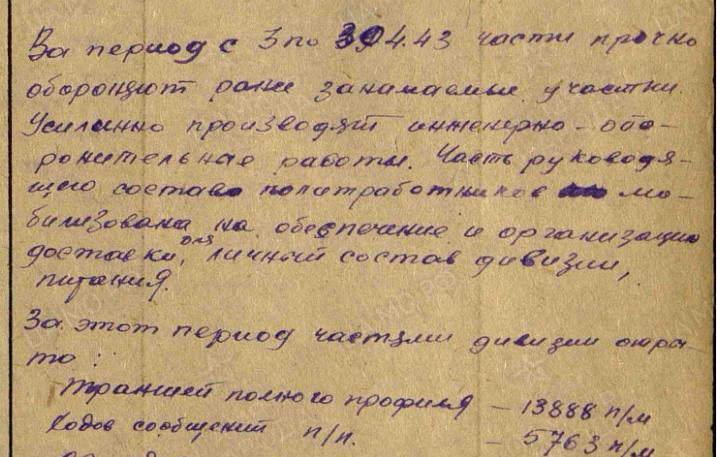 За период с 3 по 30.4.43 части прочно
обороняют ранее занимаемые участки.
Усиленно производят инженерно-обо-
ронительные работы. Часть руководя-
щего состава политработников мо-
билизована на обеспечение и организацию
доставки, для личный состав дивизии,
питания.
За этот период частями дивизии отры-
то:
Траншей полного профиля – 13888 п/м
Ходов сообщений п/п. – 5763 п/м